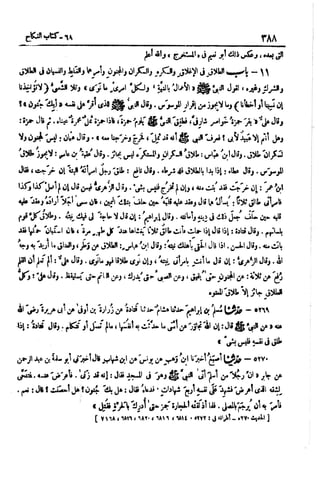 ٣٨٨
٦٨- كتاب النكاح
التي بعده، وعكس ذلك أبو نعيم في «المستخرج» والله أعلم
١١ - باب الطلاق في الإغلاق والكره والسكران والمجنون وأمرهما والغلط والنسيان في الطلاق
والشرك وغيره، لقول النبي ﷺ «الأعمال بالنية، ولكل امرئ ما نوى» وتلا الشعبي ﴿لا تؤاخذنا
إن نسينا أو أخطأنا﴾ وما لا يجوز من إقرار الموسوس. وقال النبي ﷺ للذي أقر على نفسه «أبك جنون»؟
وقال علي «بقر حمزة خواصر شارفي، فطفق النبي ﷺ يلوم حمزة، فإذا حمزة ثمل محمرة عيناه. ثم قال حمزة
وهل أنتم إلا عبيد لأبي؟ فعرف النبي ﷺ أنه قد ثمل، فخرج وخرجنا معه». وقال عثمان: ليس لمجنون ولا
لسكران طلاق. وقال ابن عباس: طلاق السكران والمستكره ليس بجائز. وقال عقبة بن عامر: لا يجوز طلاق
الموسوس. وقال عطاء: إذا بدأ بالطلاق فله شرطه. وقال نافع: طلق رجل امرأته البتة إن خرجت، فقال
ابن عمر: إن خرجت فقد بتت منه، وإن لم تخرج فليس بشيء. وقال الزهري فيمن قال إن لم أفعل كذا وكذا
فامرأتي طالق ثلاثا: يسأل عما قال وعقد عليه قلبه حين حلف بتلك اليمين، فإن سمى أجلا أراده وعقد عليه
قلبه حين حلف جعل ذلك في دينه وأمانته. وقال إبراهيم: إن قال لا حاجة لي فيك نيته. وطلاق كل قوم
بلسانهم. وقال قتادة: إذا قال إذا حملت فأنت طالق ثلاثا يغشاها عند كل طهر مرة، فإن استبان حملها فقد
بانت منه. وقال الحسن: إذا قال الحقي بأهلك نيته: وقال ابن عباس: الطلاق عن وطر، والعتاق ما أريد به وجه
الله. وقال الزهري: إن قال ما أنت بامرأتي نيته، وإن نوى طلاقا فهو ما نوى. وقال علي: ألم تعلم أن القلم
رفع عن ثلاثة: عن المجنون حتى يفيق، وعن الصبي حتى يدرك، وعن النائم حتى يستيقظ. وقال علي: وكل
الطلاق جائز إلا طلاق المعتوه
٥٢٦٩ - حدثنا مسلم بن إبراهيم حدثنا هشام حدثنا قتادة عن زرارة بن أوفى عن أبي هريرة رضي الله
عنه «عن النبي ﷺ قال: إن الله تجاوز عن أمتي ما حدثت به أنفسها، ما لم تعمل أو تتكلم. وقال قتادة: إذا
طلق في نفسه فليس بشيء»
٥٢٧٠ - حدثنا أصبغ أخبرنا ابن وهب عن يونس عن ابن شهاب قال أخبرني أبو سلمة بن عبد الرحمن
عن جابر «أن رجلا من أسلم أتى النبي ﷺ وهو في المسجد فقال: إنه قد زنى. فأعرض عنه. فتنحى
لشقه الذي أعرض فشهد على نفسه أربع شهادات. فدعاه فقال: هل بك جنون؟ هل أحصنت؟ قال: نعم.
فأمر به أن يرجم بالمصلى. فلما أذلقته الحجارة جمز حتى أدرك بالحرة فقتل»
[الحديث ٥٢٧٠ - أطرافه في: ٥٢٧٢، ٦٨١٤، ٦٨١٦، ٦٨٢٠، ٦٨٢٦، ٧١٦٨]